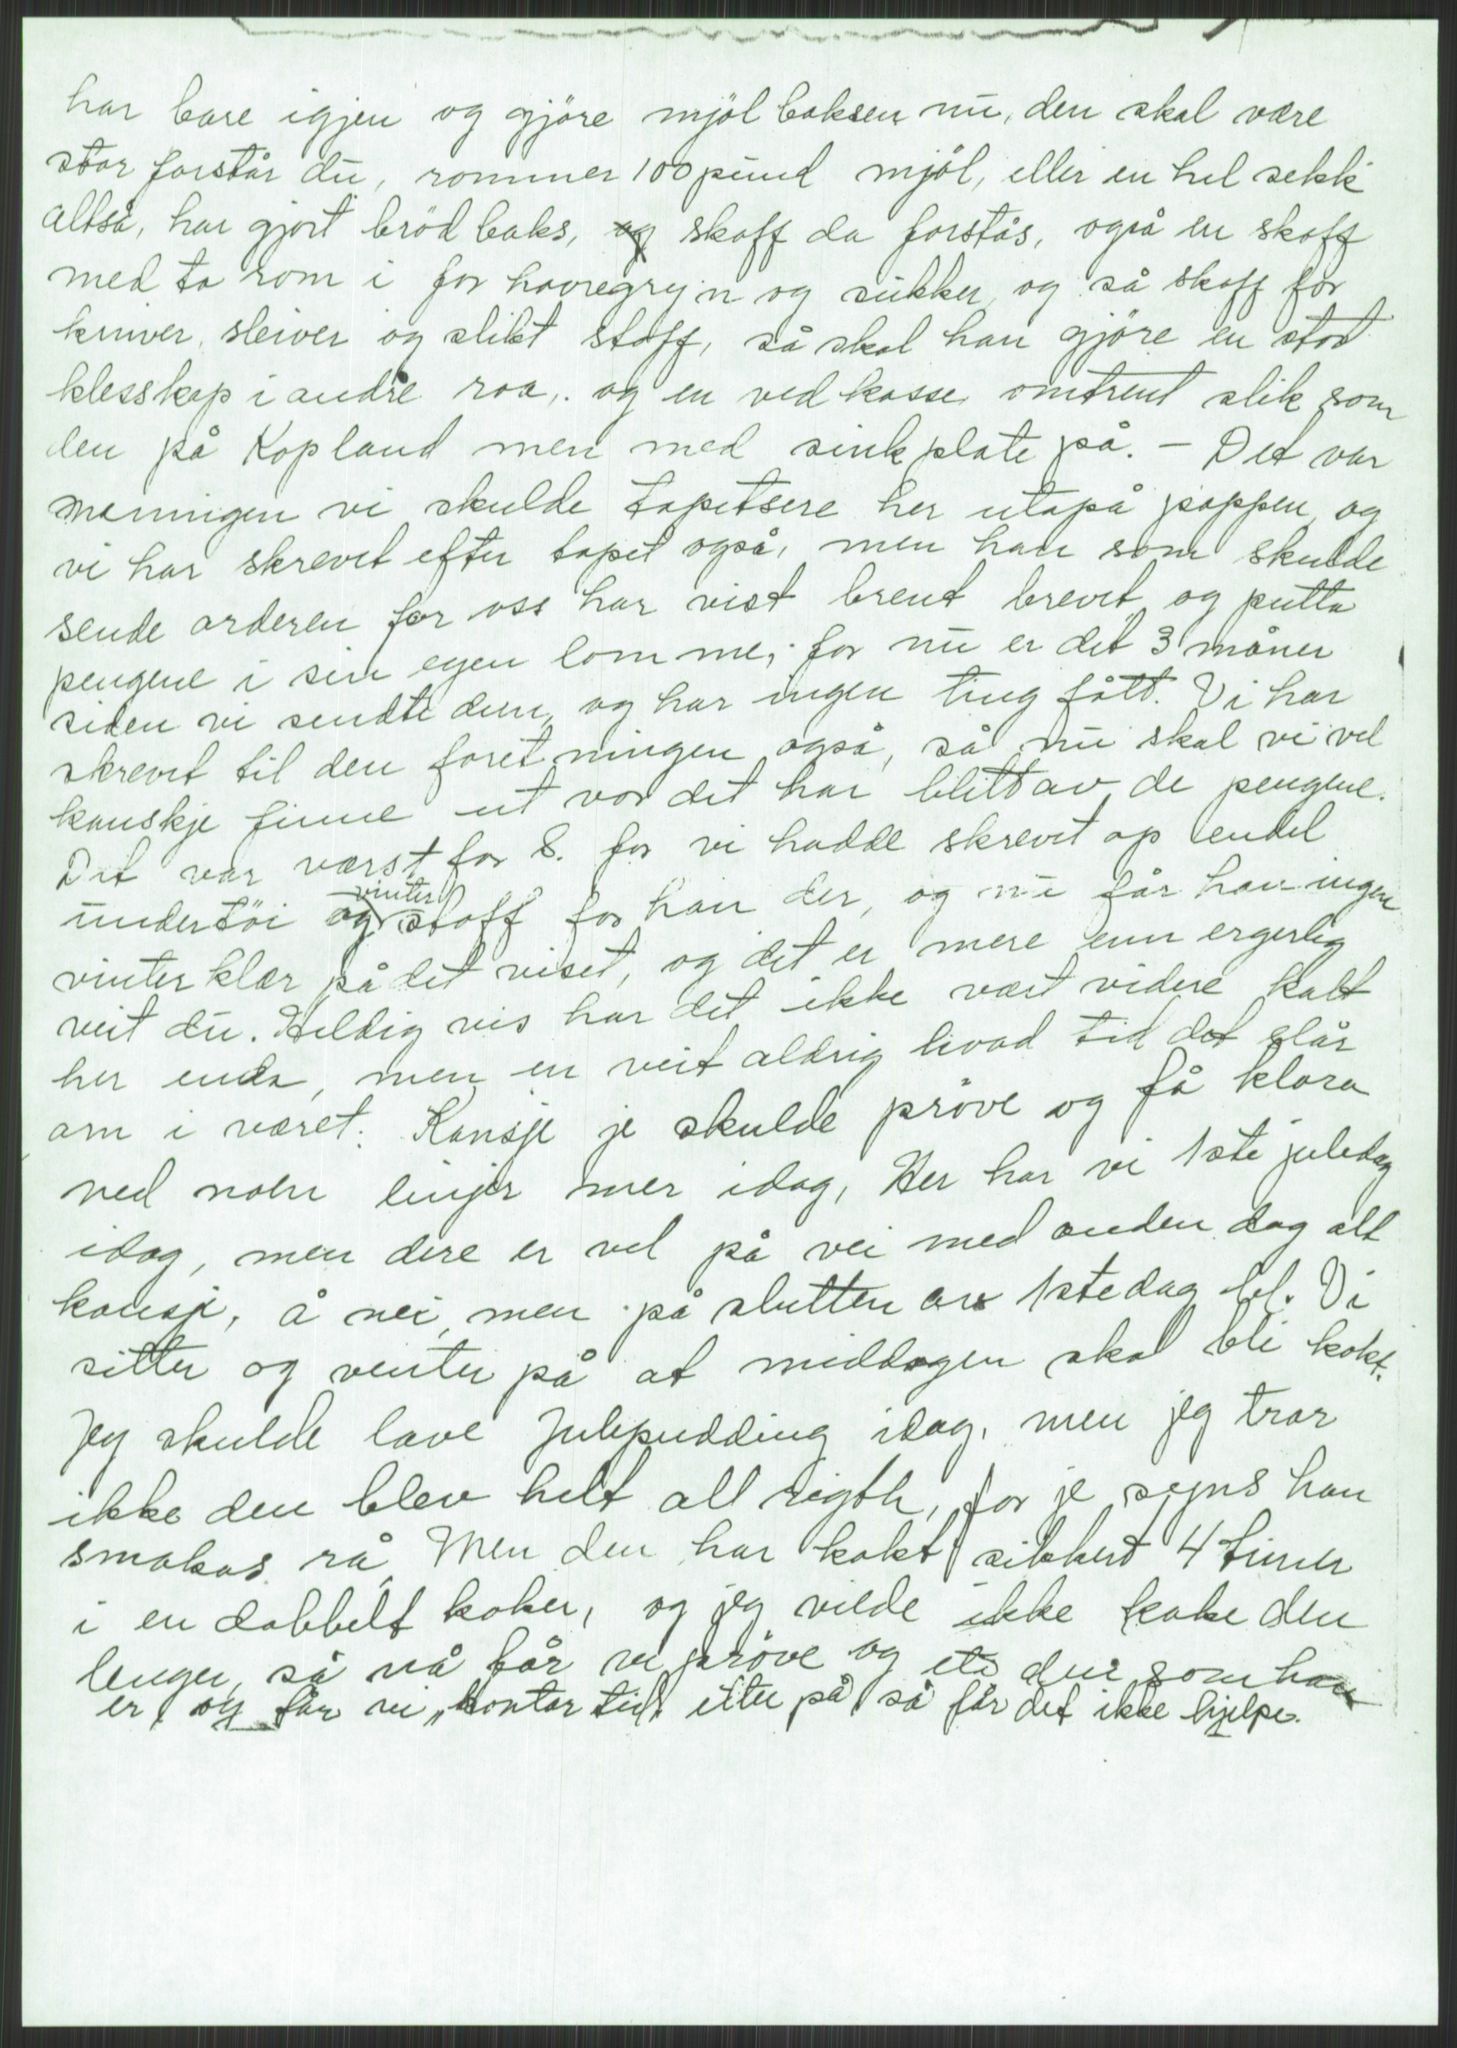 har bare igjen og gjöre mjölboksen nu, den skal være
stor forstår du, rommer 100 pund mjöl, eller en hel sekk
altså, har gjort brödboks, og skoff da forstås, også en skoff
med to rom i for havregryn og sukker, og så skoff for
kniver, sleiver og slikt stoff, så skal han gjöre en stor
klesskap i andre roa, og en vedkasse omtrent slik som
den på Kopland men med sinkplate på. – Det var
meningen vi skulde tapitsere her utapå pappen og
vi har skrevet efter tapet også, men han som skulde
sende orderen for oss har vist brent brevet og putta
pengene i sin egen lomme, for nu er det 3 måner
siden vi sendte dem, og har ingen ting fått. Vi har
skrevet til den foretningen også, så nu skal vi vel
kanskje finne ut vor det har blitt av de pengene.
Det var værst for S. for vi hadde skrevet op endel
undertöi og vinter stoff for han der, og nu får han ingen
vinterklær på det viset, og det er mere enn ergerlig
veit du. Heldig vis har det ikke vært videre kalt
her enda, men en veit aldrig hvad tid det slår
om i været. Kansje je skulde pröve og få klora
ned noen linjer mer idag, Her har vi 1ste juledag
idag, men dere er vel på vei med anden dag alt
kansje, å nei, men på slutten av 1stedag kl. Vi
sitter og venter på at middagen skal bli kokt.
Jeg skulde lave Julepudding idag, men jeg tror
ikke den blev helt all rigth, for je syns han
smakas rå, Men den har kokt sikkert 4 timer
i en dobbelt koker, og jeg vilde ikke koke den
lenger, så nå får vi pröve og ete den som han
er, og får vi „kontortid" etter på så får det ikke hjelpe.